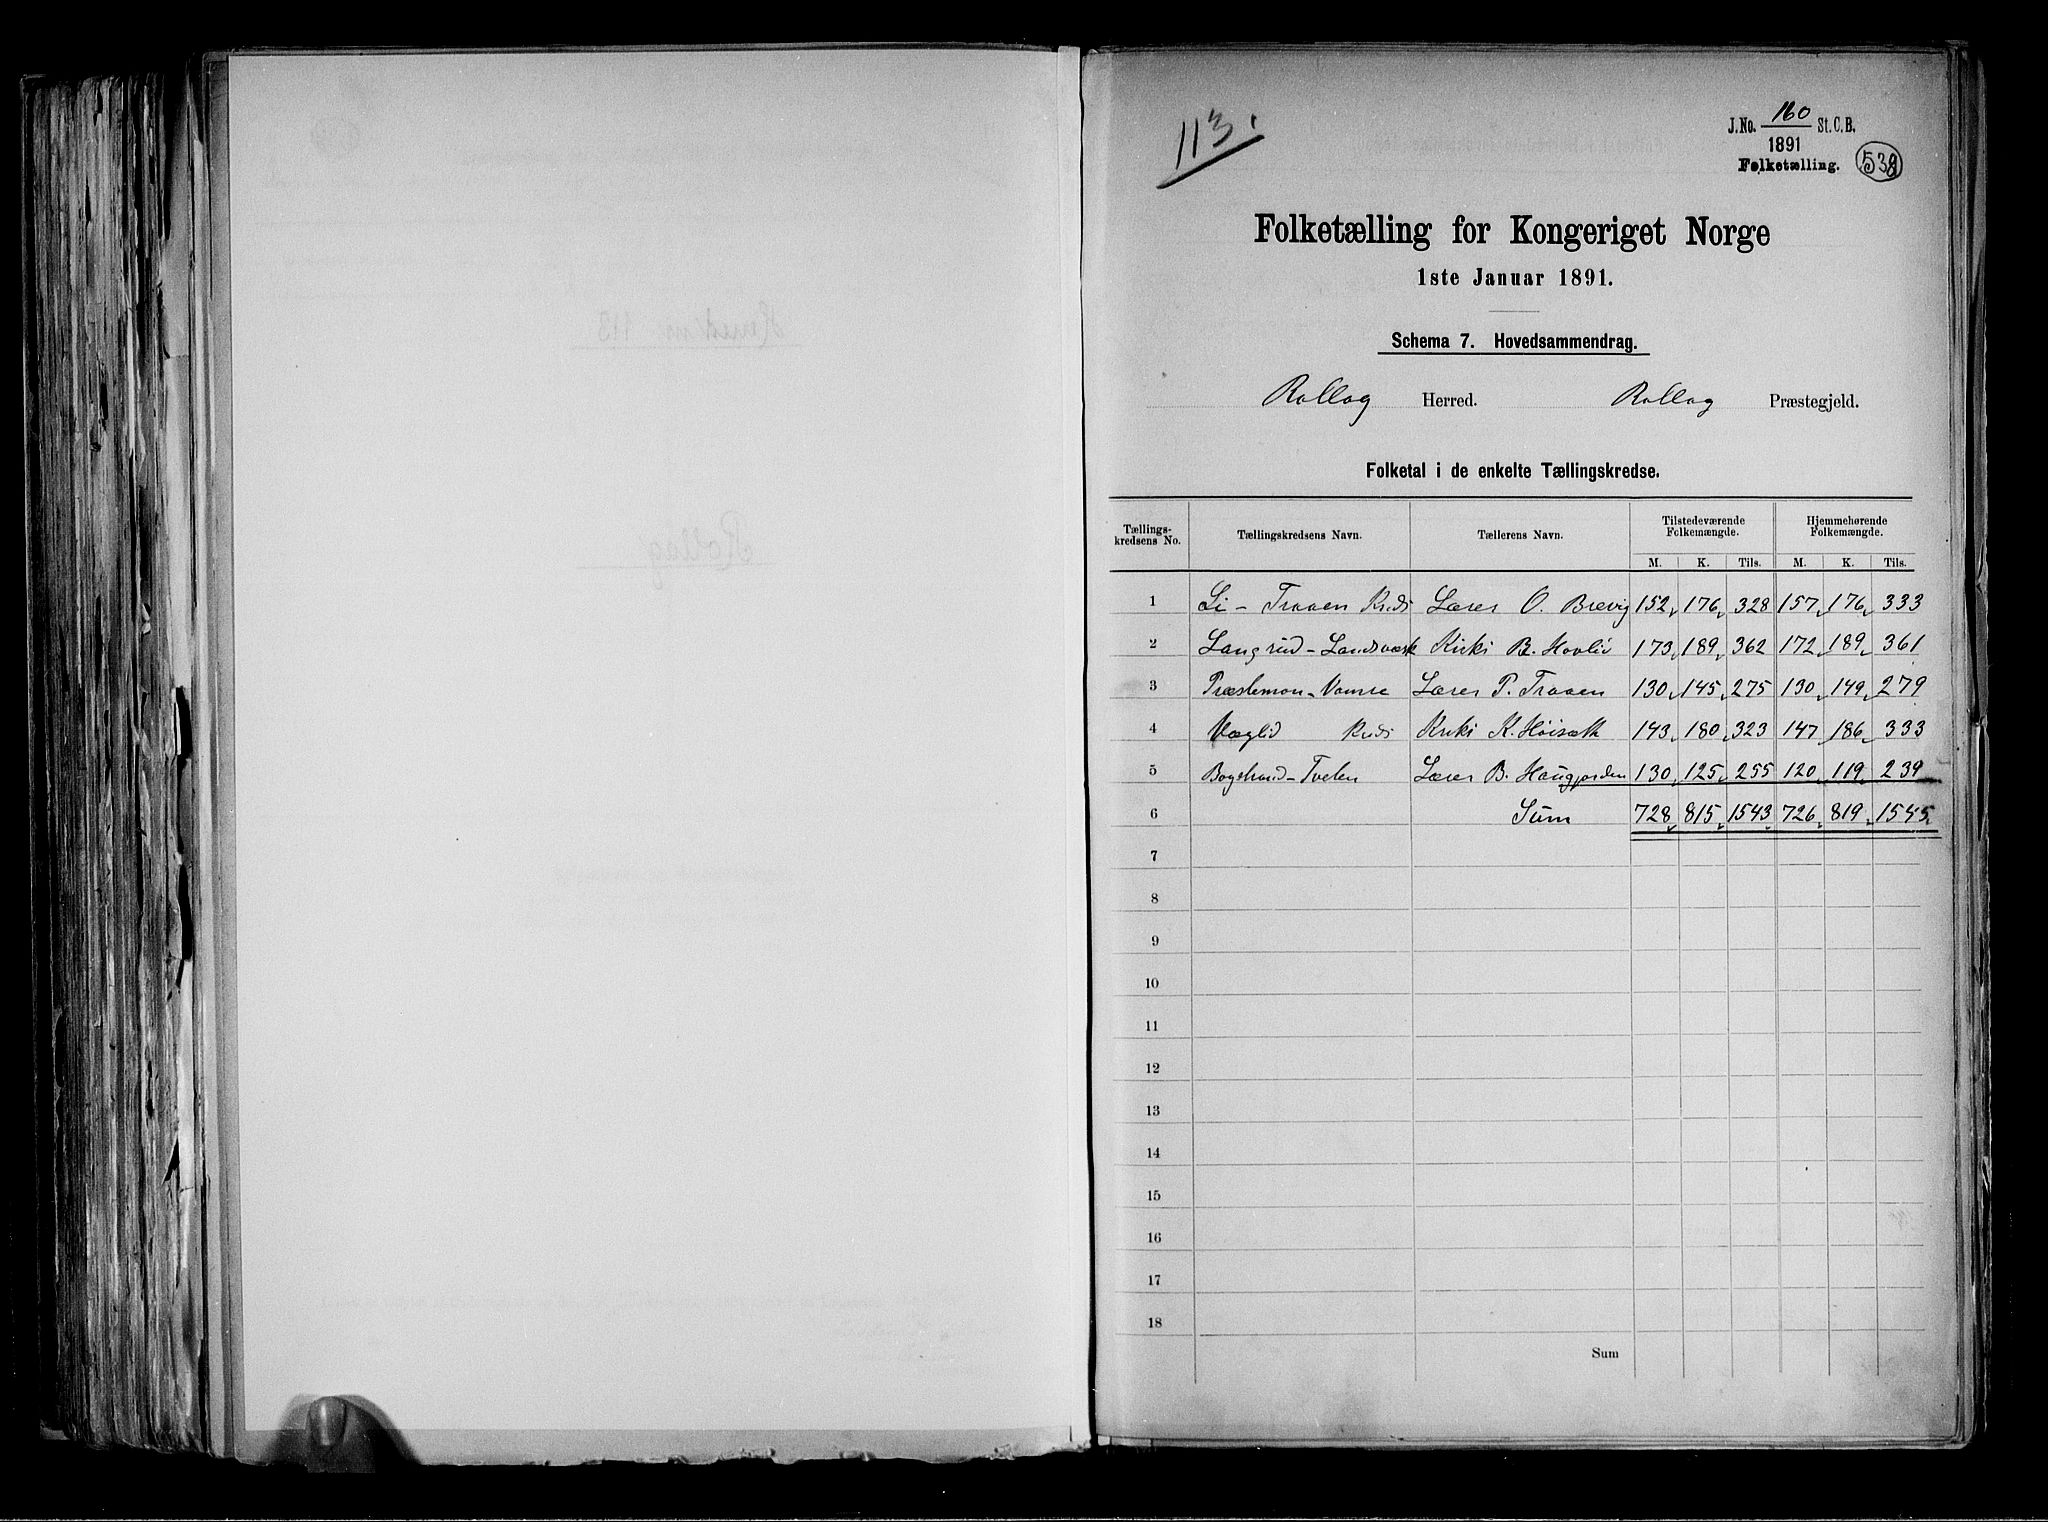 113.
J.No. 160 St. C. B.
1891
Folketælling. 538
Folketælling for Kongeriget Norge
1ste Januar 1891.
Schema 7. Hovedsammendrag.
Rollag Herred. Rollag Præstegjeld.
Folketal i de enkelte Tællingskredse.
Tællings-kredsens No. Tællingskredsens Navn. Tællerens Navn. Tilstedeværende Folkemængde. Hjemmehørende Folkemængde.
M. K. Tils. M. K. Tils.
1 Li - Traaen Kreds Lærer O. Brevig 152 176 328 157 176 333
2 Langrud - Landsværk B. Hovliv 173 189 362 172 189 361
3 Præstemoen - Vamre Lærer P. Traaen 130 145 275 130 149 279
4 Væglid Kreds K. Høisæth 143 180 323 147 186 333
5 Bogstrand - Tveten Lærer B. Haugjorden 130 125 255 120 119 239
6 Sum 728 815 1543 726 819 1545
7
8
9
10
11
12
13
14
15
16
17
18
Sum
Rollag